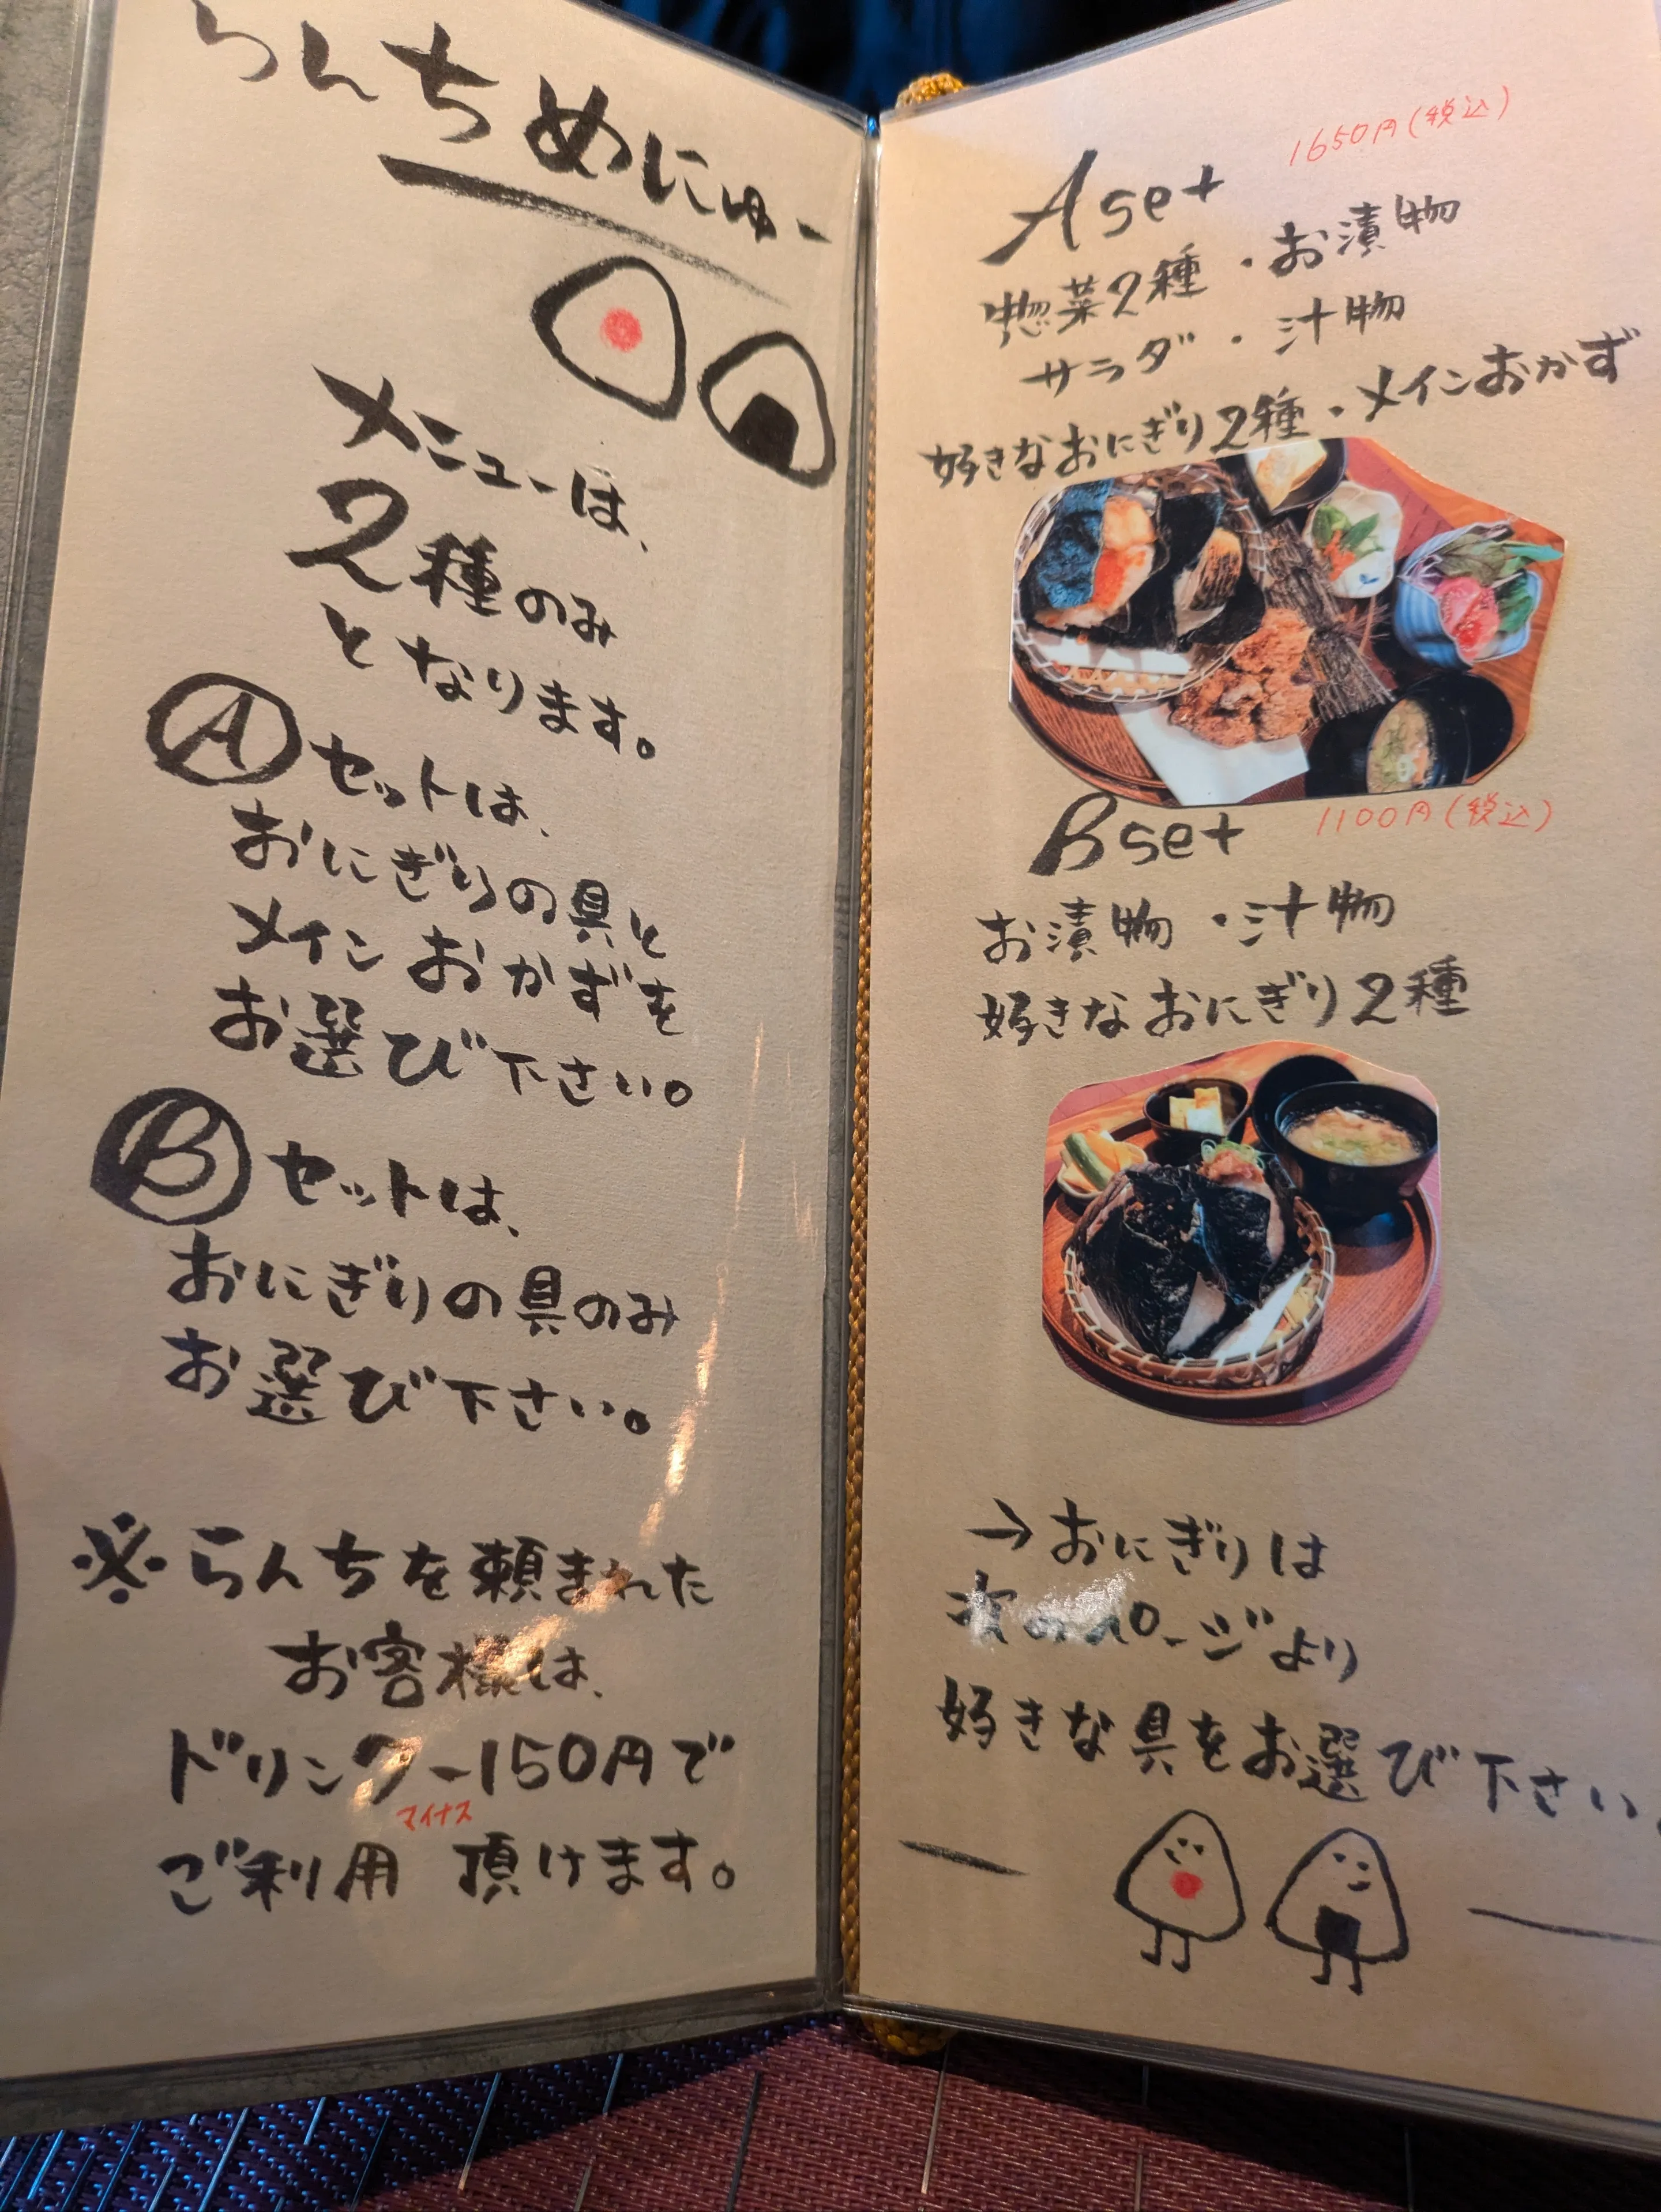 らんちめにゅー
メニューは、
2種のみ
となります。
Aセットは、
おにぎりの具と
メインおかずを
お選び下さい。
Bセットは、
おにぎりの具のみ
お選び下さい。
※らんちを頼まれた
お客様は、
ドリンクー150円で
マイナス
ご利用 頂けます。
1650円(税込)
A set
惣菜2種・お漬物
サラダ・汁物
好きなおにぎり2種・メインおかず
1100円(税込)
B set
お漬物・汁物
好きなおにぎり2種
→おにぎりは
次のページより
好きな具をお選び下さい。